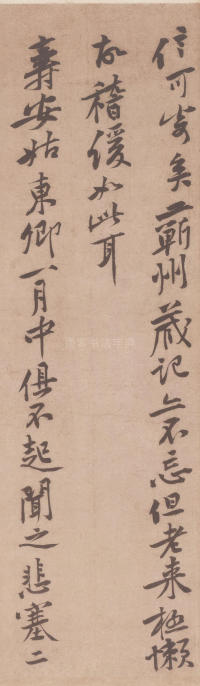 信可愛矣二蘄州藏記亦不忘但老來極懶
故稽緩如此耳
壽安姑東卿一月中俱不起聞之悲塞二